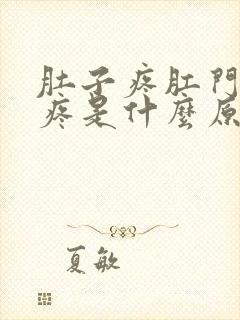 肚子疼肛門
疼是什麼原
夏敏